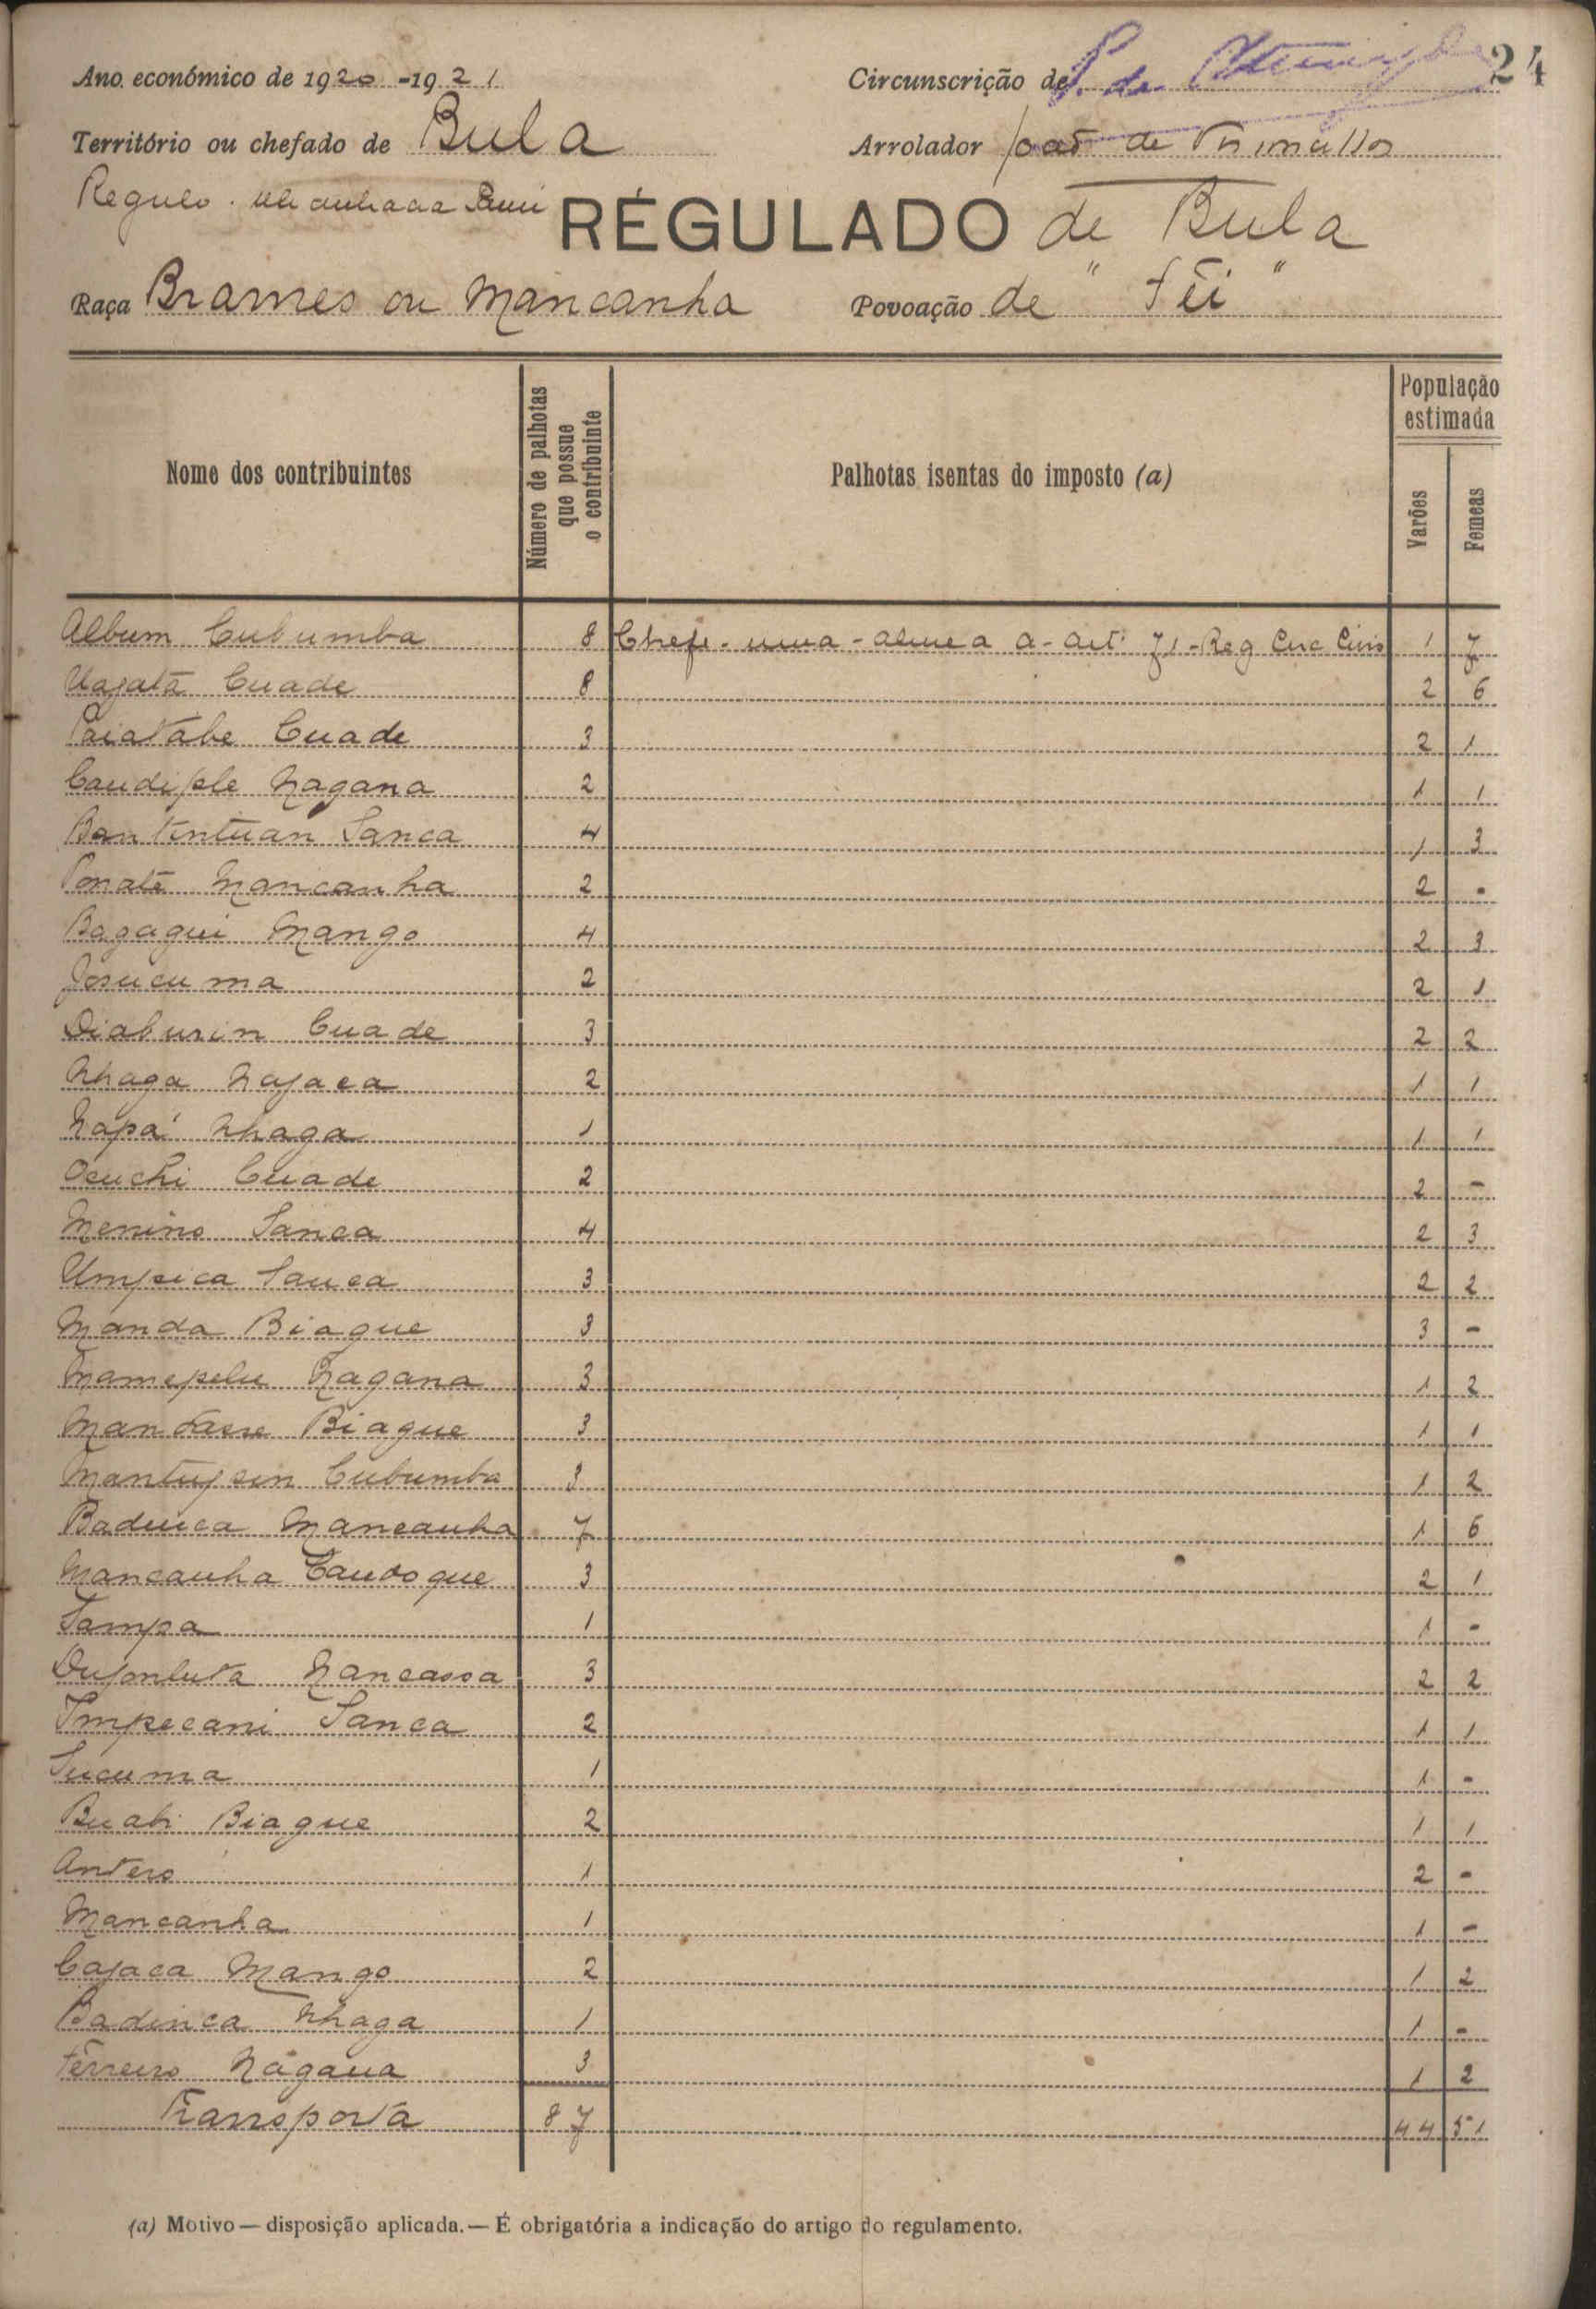 24
Ano económico de 1920-1921
Circunscrição de
Território ou chefado de Bula
Arrolador de
Regulo
RÉGULADO de Bula
Raça Brames ou Mancanha
Povoação de "
Nome dos contribuintes
Número de palhotas que possue o contribuinte
Palhotas isentas do imposto (a)
População estimada
Varões
Femeas
Album Cubumba 8 Chefe - uma - alinea a - art. 71 - Reg Circ Civis 1 7
Cuade 8 2 6
Cuade 3 2 1
Nagana 2 1 1
Sanca 4 1 3
Mancanha 2 2 -
Bagagui Mango 4 2 3
2 2 1
Cuade 3 2 2
Nhaga Najaca 2 1 1
Napá Nhaga 1 1 1
Ocuchi Cuade 2 2 -
Menino Sanca 4 2 3
Umpica Sanca 3 2 2
Manda Biague 3 3 -
Nagana 3 1 2
Biague 3 1 1
Cubumba 3 1 2
Mancanha 7 1 6
Mancanha Candoque 3 2 1
Sampa 1 1 -
Nancassa 3 2 2
Impecani Sanca 2 1 1
Sucuma 1 1 -
Buabi Biague 2 1 1
Antero 1 2 -
Mancanha 1 1 -
Cajaca Mango 2 1 2
Badinca Nhaga 1 1 -
Ferreiro Nagana 3 1 2
Transporta 87 44 51
(a) Motivo — disposição aplicada. — É obrigatória a indicação do artigo do regulamento.